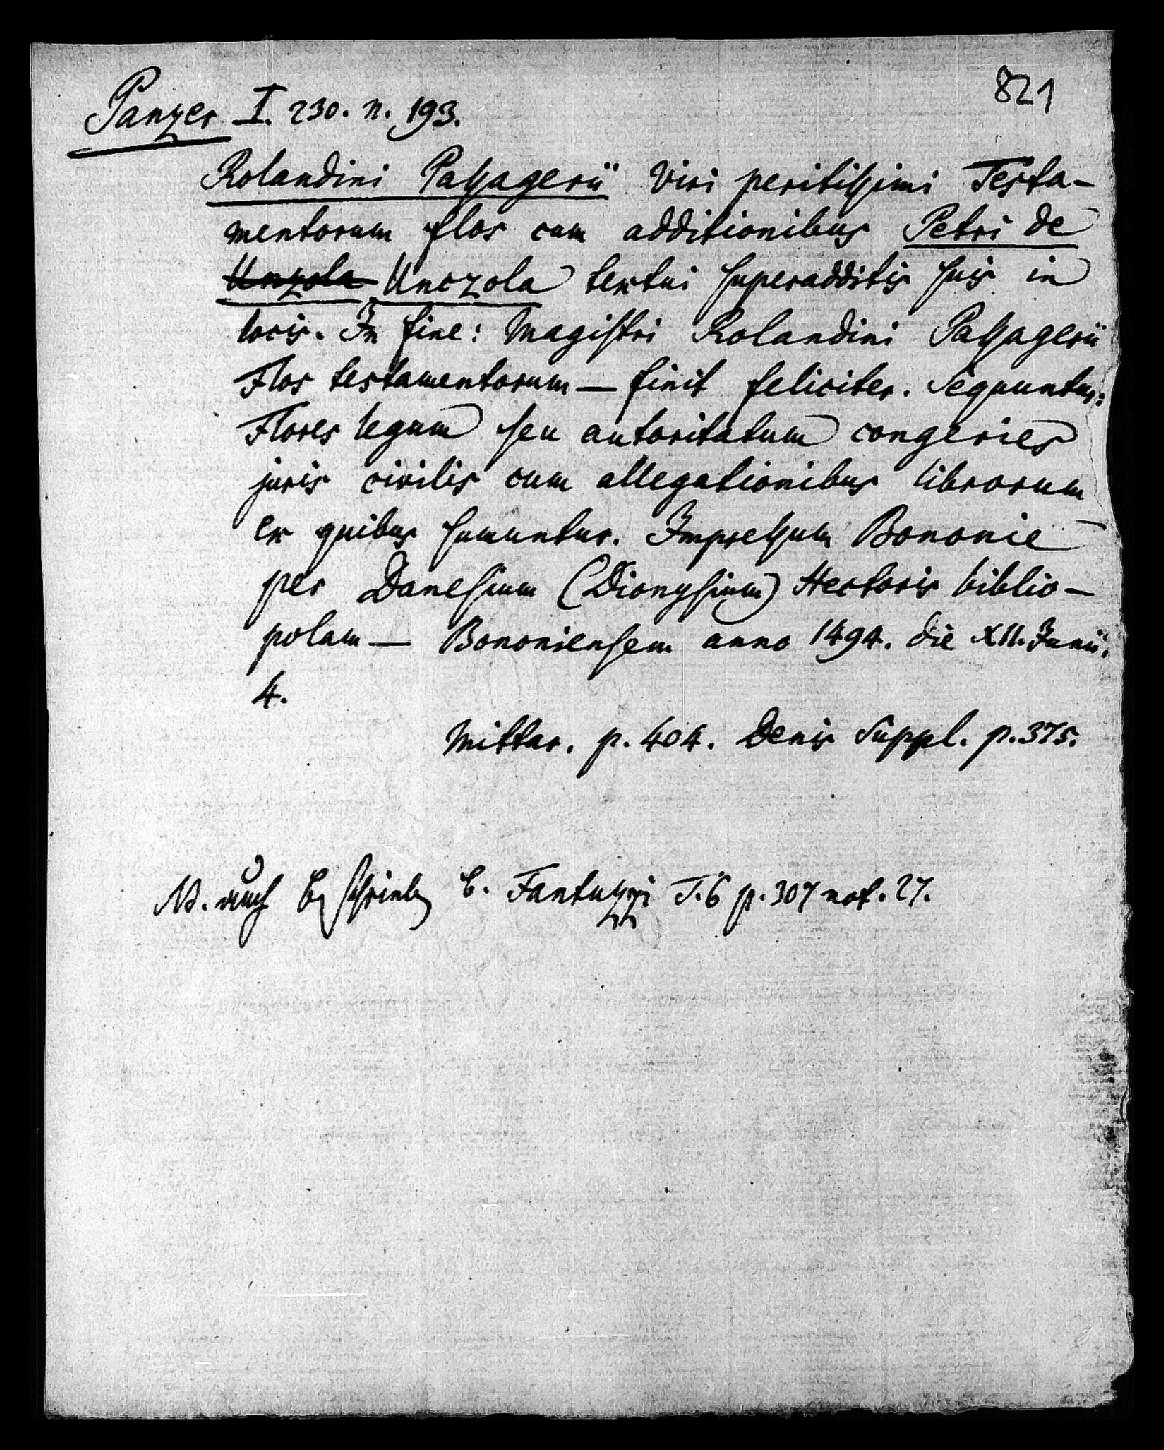 821
Panzer I. 230. n. 193.
Rolandini Passagerii Viri peritissimi Testa-
mentorum flos cum additionibus Petri de
Unzola Unczola textui superadditis suis in
locis. In fine: Magistri Rolandini Passagerii
Flos testamentorum — finit feliciter. Sequuntur:
Flores legum seu autoritatum congeries
juris civilis cum allegationibus librorum
ex quibus sumuntur. Impressum Bononie
per Danesium (Dionysium) Hectoris biblio-
polam — Bononiensem anno 1494. die XII. Junii.
4.
Mittar. p. 404. Denis Suppl. p. 375.
NB. auch beschrieben b. Fantuzzi T. 6 p. 307 not. 27.